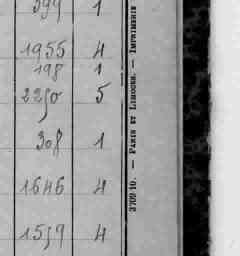 399 1
1955 4
198 1
2250 5
308 1
1646 4
1559 4
3709-10. — PARIS ET LIMOGES. — IMPRIMERIE